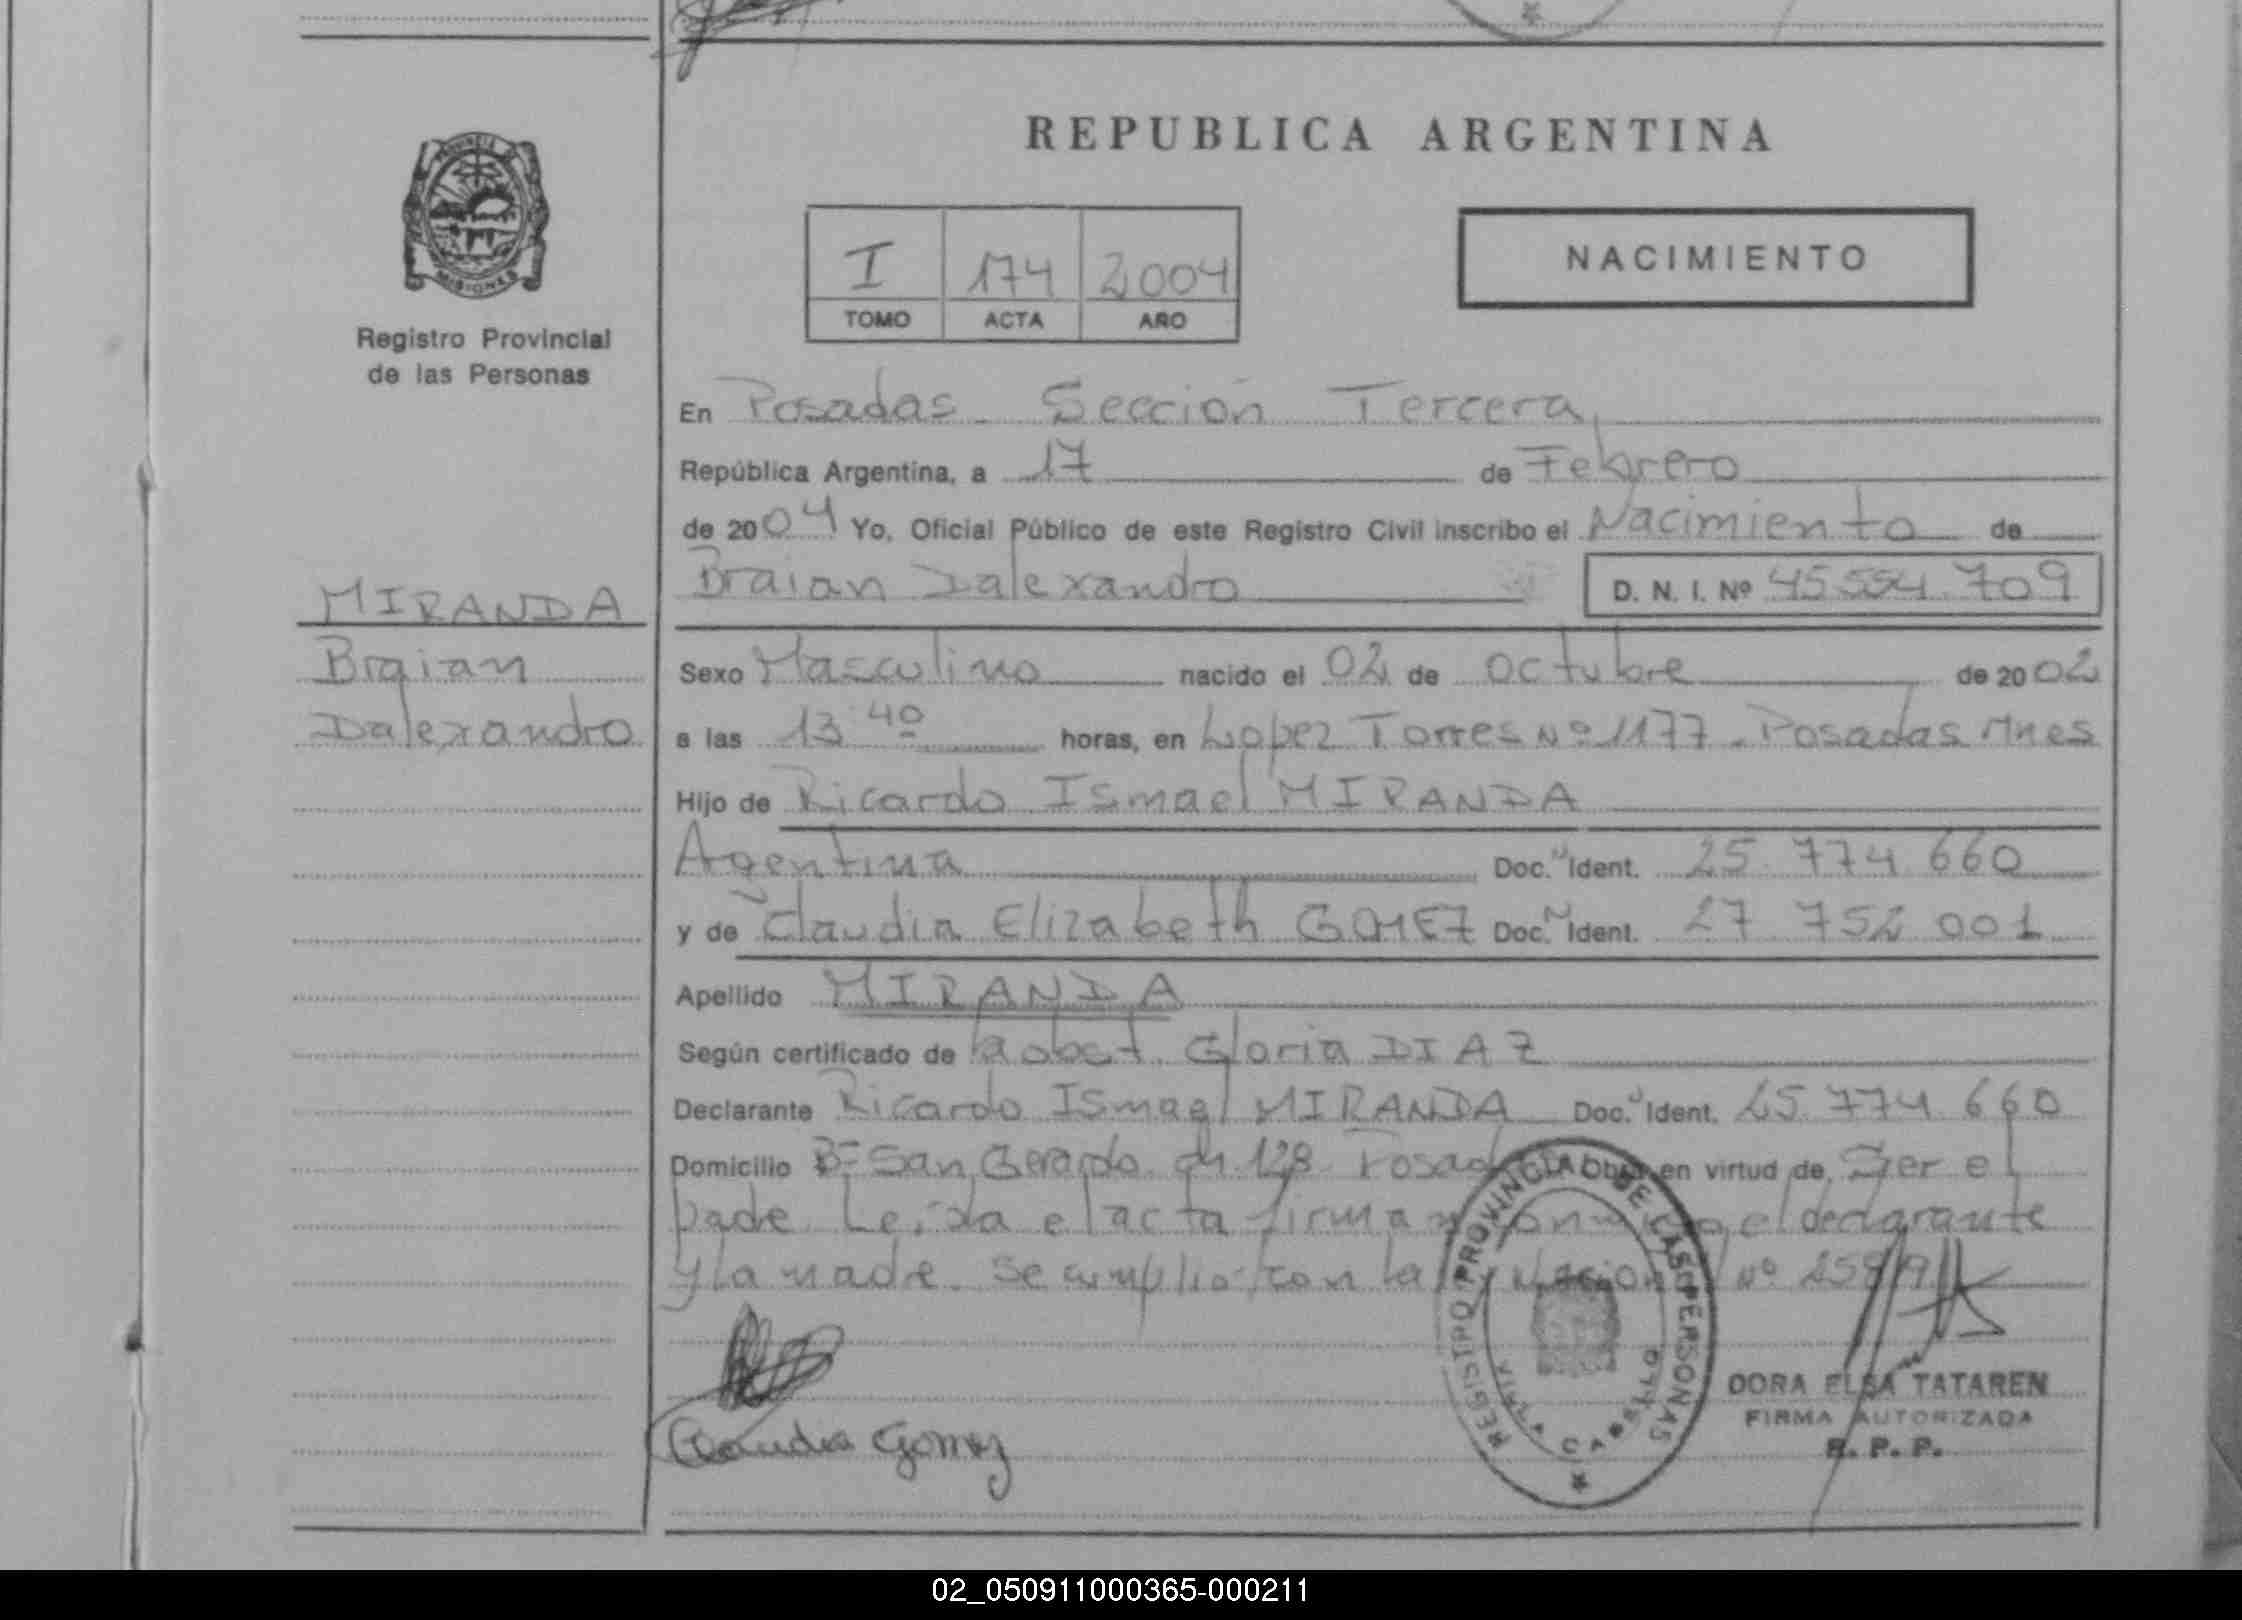 REPUBLICA ARGENTINA
PROVINCIA DE
MISIONES
Registro Provincial
de las Personas
I 174 2004
TOMO ACTA AÑO
NACIMIENTO
En Posadas - Sección Tercera,
República Argentina, a 17 de Febrero
de 2004 Yo, Oficial Público de este Registro Civil inscribo el Nacimiento de
Braian Dalexandro D. N. I. Nº 45.554.709
MIRANDA
Braian
Dalexandro
Sexo Masculino nacido el 02 de octubre de 2002
a las 13 40 horas, en Lopez Torres Nº 1177 - Posadas Mnes
Hijo de Ricardo Ismael MIRANDA
Agentina Doc. Ident. 25.774.660
y de Claudia Elizabeth GOMEZ Doc. Ident. 27.752.001
Apellido MIRANDA
Según certificado de obst. Gloria DIAZ
Declarante Ricardo Ismael MIRANDA Doc. Ident. 25.774.660
Domicilio Bº San Gerardo ch 128 Posadas Obra en virtud de Ser el
padre. Leida el acta firman conmigo el declarante
y la madre. Se cumplio con la Nacional Nº
Claudia Gomez
REGISTRO PROVINCIAL DE LAS PERSONAS
DORA ELSA TATAREN
FIRMA AUTORIZADA
R. P. P.
02_050911000365-000211